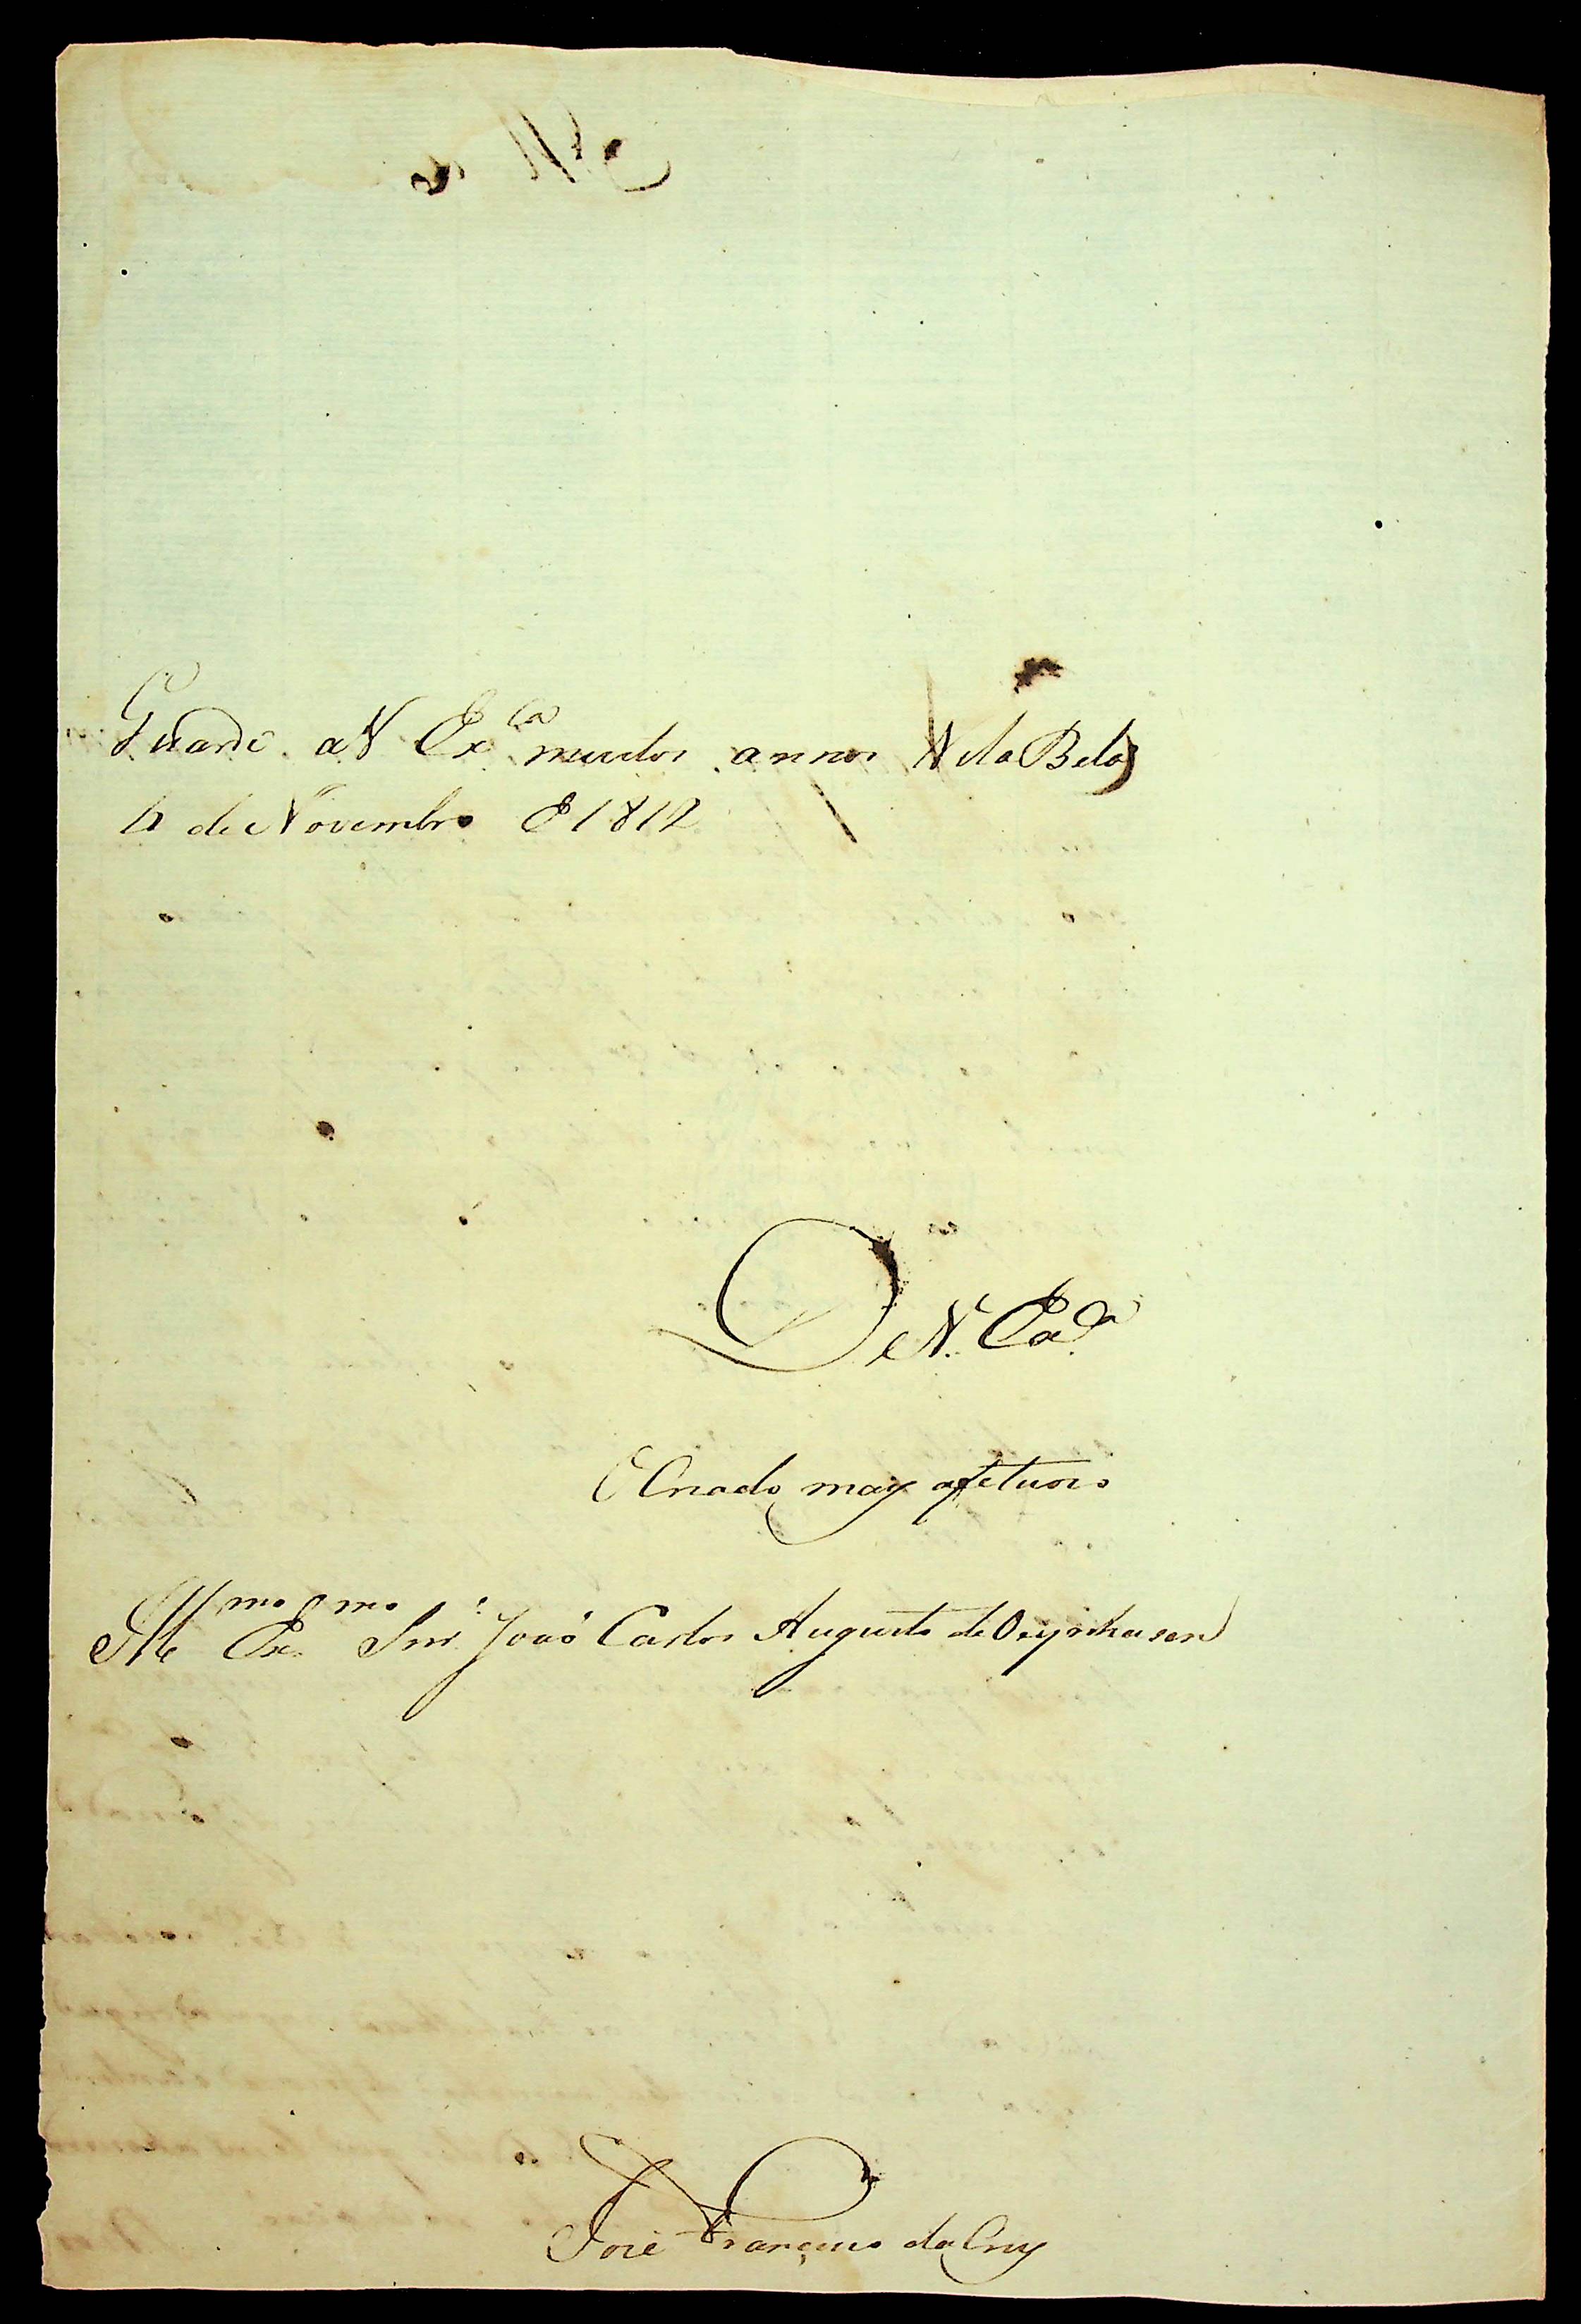 Guarde a V Ex.cia muitos annos Villa Bela
4 de Novembro de 1812
De V. Exca.
O Criado may afetuozo
Illmo Exmo Snr. João Carlos Augusto de Oeynhausen
Joze Francisco da Cruz